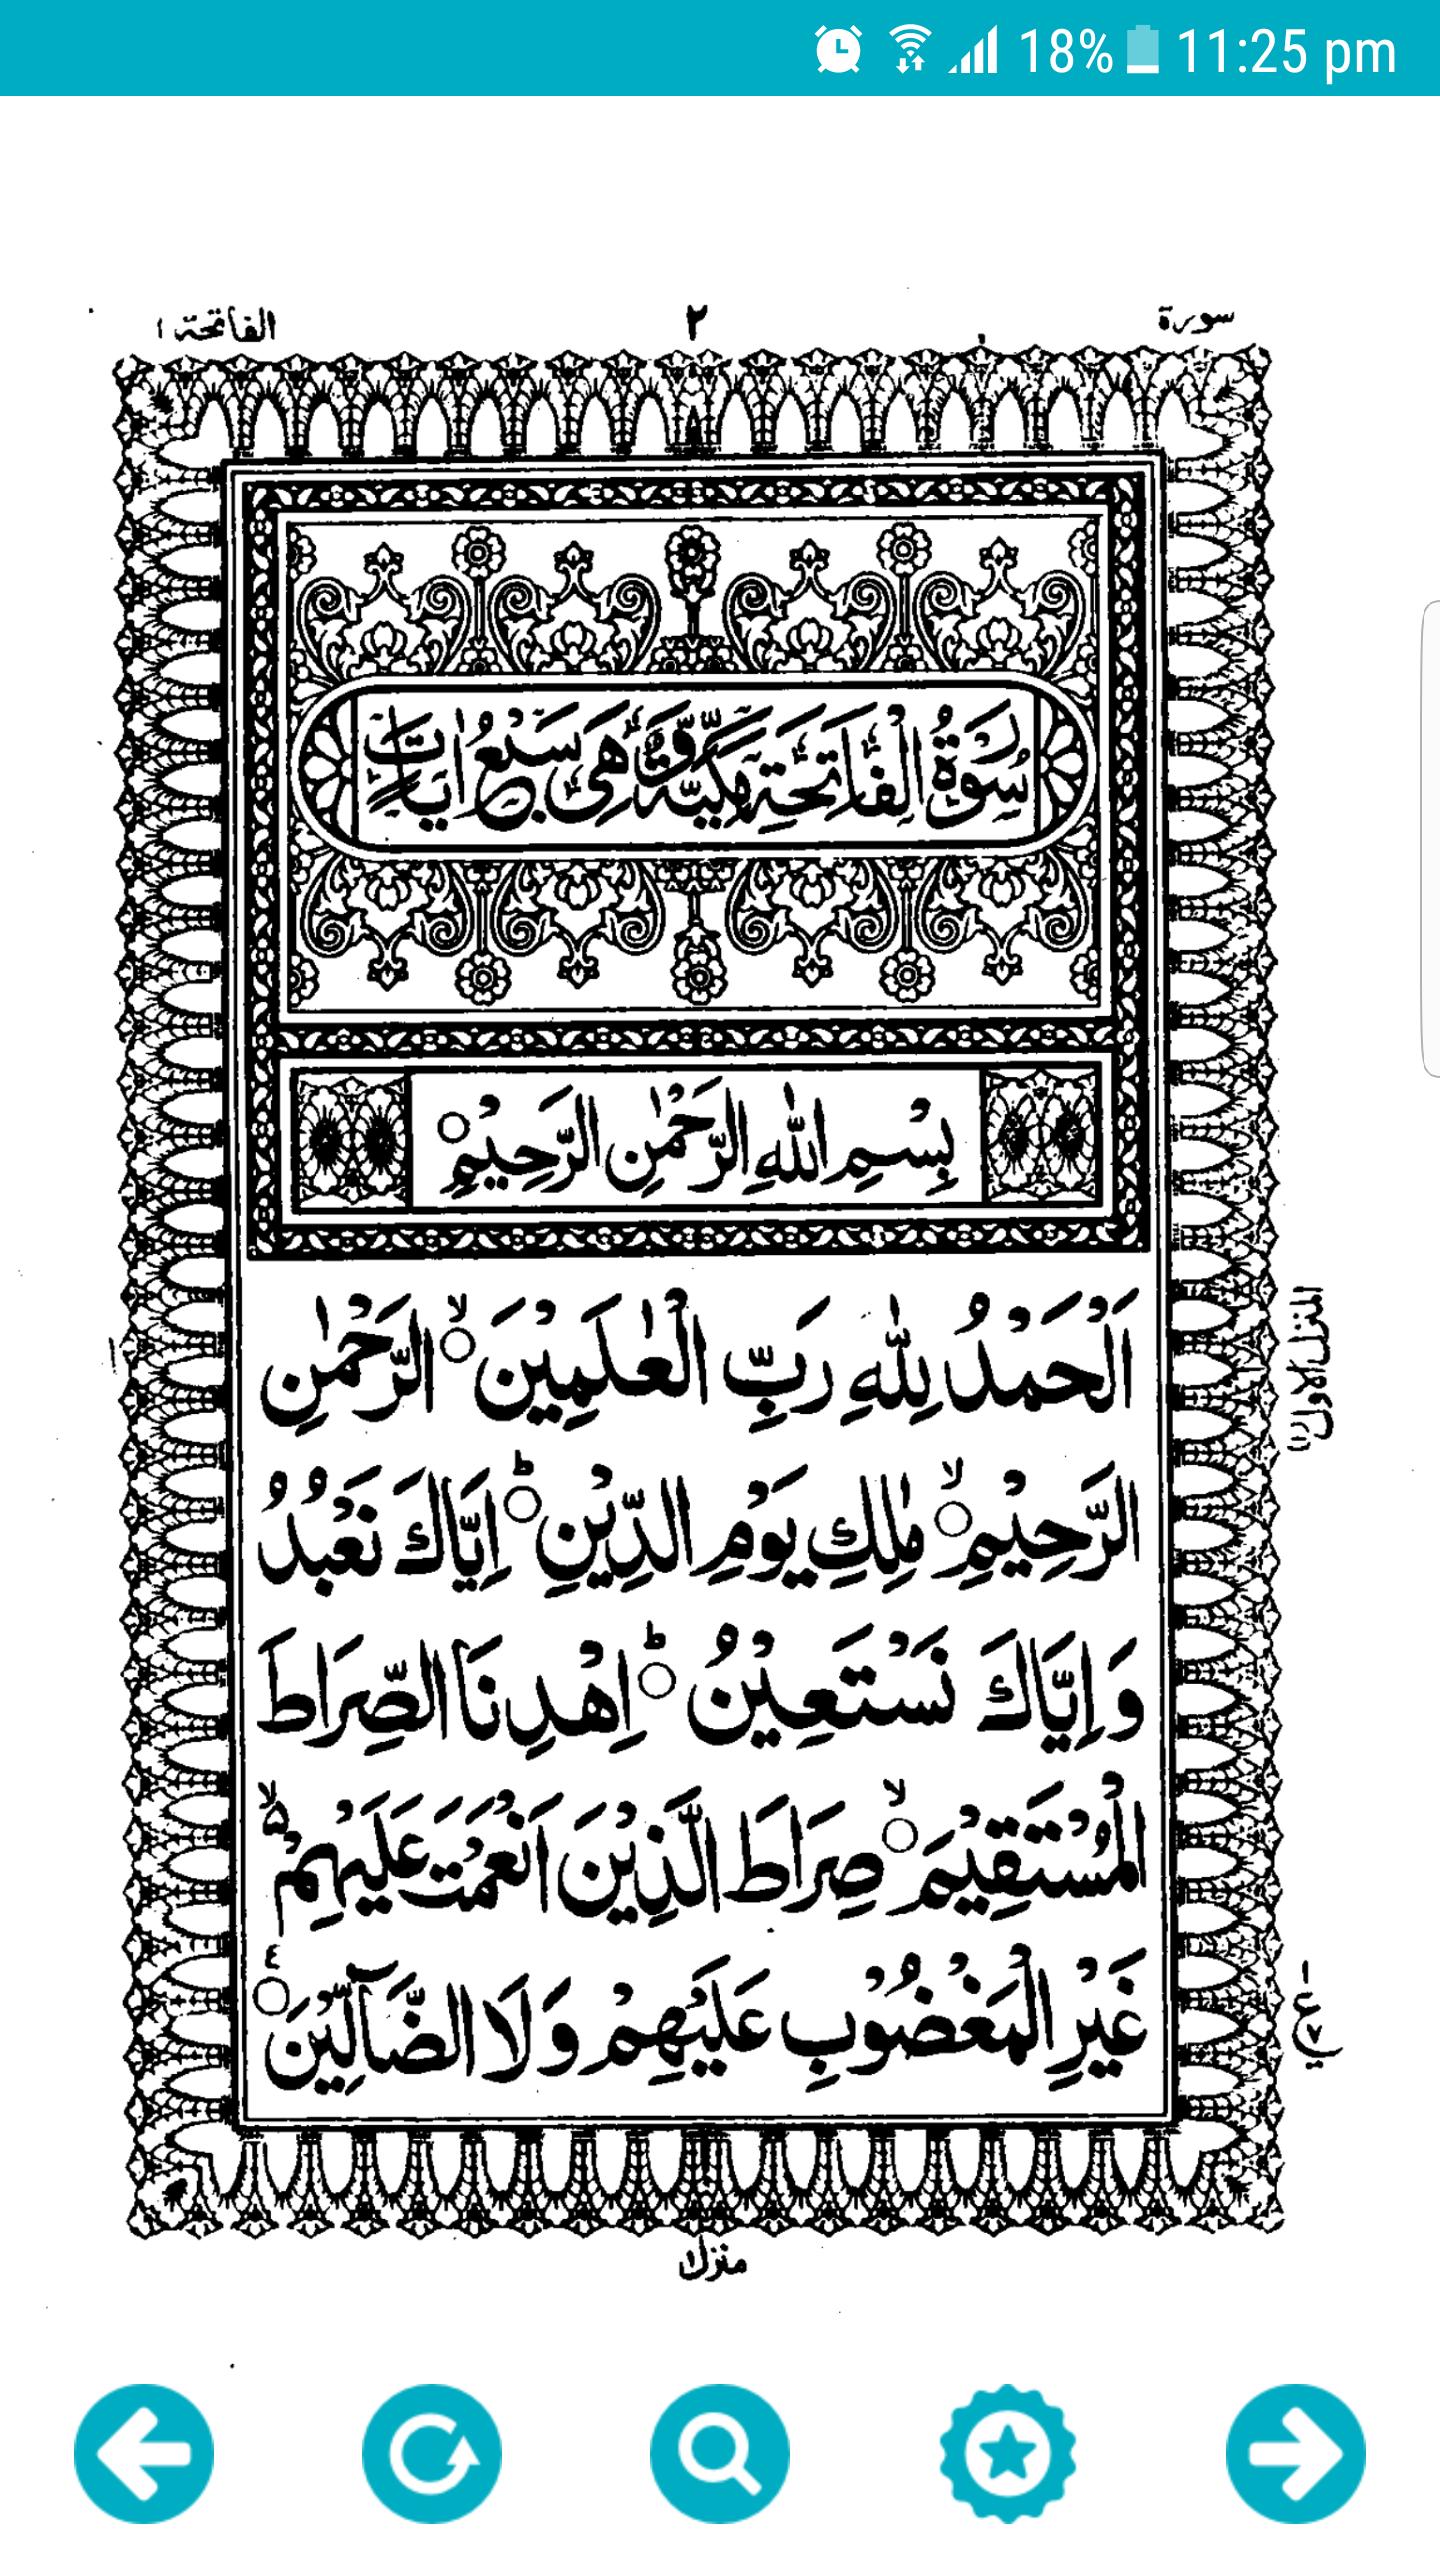 18% 11:25 pm
سورة ٢ الفاتحة ١
سُوْرَةُ الْفَاتِحَةِ مَكِّيَّةٌ وَّهِیَ سَبْعُ اٰیَاتٍ
بِسْمِ اللّٰهِ الرَّحْمٰنِ الرَّحِیْمِ○
اَلْحَمْدُ لِلّٰهِ رَبِّ الْعٰلَمِیْنَ○ۙ الرَّحْمٰنِ
الرَّحِیْمِ○ۙ مٰلِكِ یَوْمِ الدِّیْنِ○ؕ اِیَّاكَ نَعْبُدُ
وَاِیَّاكَ نَسْتَعِیْنُ○ؕ اِهْدِنَا الصِّرَاطَ
الْمُسْتَقِیْمَ○ۙ صِرَاطَ الَّذِیْنَ اَنْعَمْتَ عَلَیْهِمْ ۙ۵
غَیْرِ الْمَغْضُوْبِ عَلَیْهِمْ وَلَا الضَّآلِّیْنَ○
المنزل الاول (١)
منزل